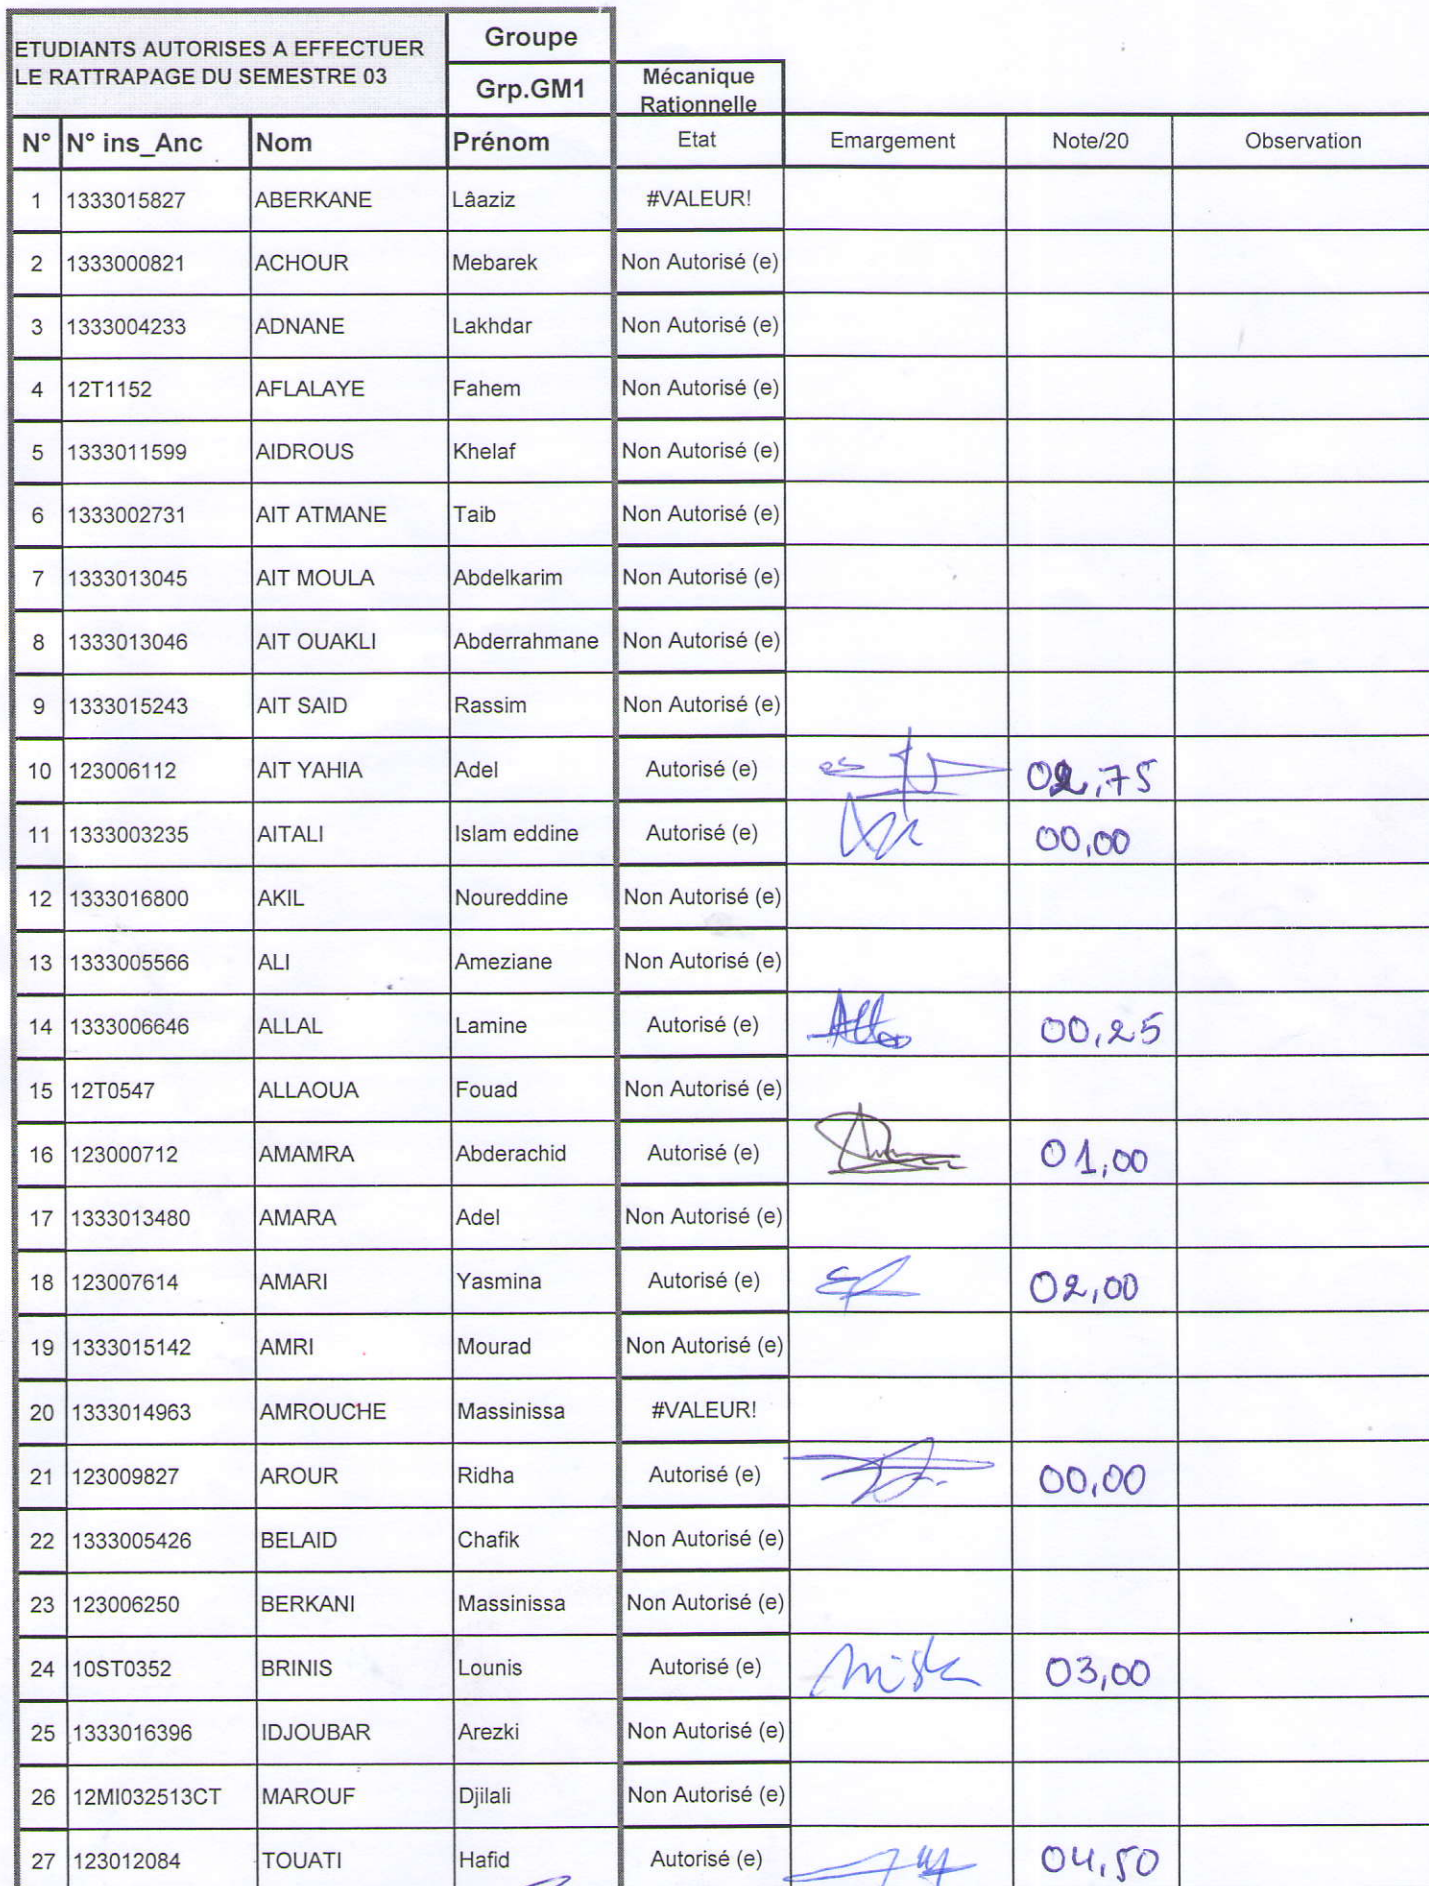 ETUDIANTS AUTORISES A EFFECTUER
LE RATTRAPAGE DU SEMESTRE 03
Groupe
Grp.GM1
Mécanique
Rationnelle
N° N° ins_Anc Nom Prénom Etat Emargement Note/20 Observation
1 1333015827 ABERKANE Lâaziz #VALEUR!
2 1333000821 ACHOUR Mebarek Non Autorisé (e)
3 1333004233 ADNANE Lakhdar Non Autorisé (e)
4 12T1152 AFLALAYE Fahem Non Autorisé (e)
5 1333011599 AIDROUS Khelaf Non Autorisé (e)
6 1333002731 AIT ATMANE Taib Non Autorisé (e)
7 1333013045 AIT MOULA Abdelkarim Non Autorisé (e)
8 1333013046 AIT OUAKLI Abderrahmane Non Autorisé (e)
9 1333015243 AIT SAID Rassim Non Autorisé (e)
10 123006112 AIT YAHIA Adel Autorisé (e) 02,75
11 1333003235 AITALI Islam eddine Autorisé (e) 00,00
12 1333016800 AKIL Noureddine Non Autorisé (e)
13 1333005566 ALI Ameziane Non Autorisé (e)
14 1333006646 ALLAL Lamine Autorisé (e) 00,25
15 12T0547 ALLAOUA Fouad Non Autorisé (e)
16 123000712 AMAMRA Abderachid Autorisé (e) 01,00
17 1333013480 AMARA Adel Non Autorisé (e)
18 123007614 AMARI Yasmina Autorisé (e) 02,00
19 1333015142 AMRI Mourad Non Autorisé (e)
20 1333014963 AMROUCHE Massinissa #VALEUR!
21 123009827 AROUR Ridha Autorisé (e) 00,00
22 1333005426 BELAID Chafik Non Autorisé (e)
23 123006250 BERKANI Massinissa Non Autorisé (e)
24 10ST0352 BRINIS Lounis Autorisé (e) 03,00
25 1333016396 IDJOUBAR Arezki Non Autorisé (e)
26 12MI032513CT MAROUF Djilali Non Autorisé (e)
27 123012084 TOUATI Hafid Autorisé (e) 04,50